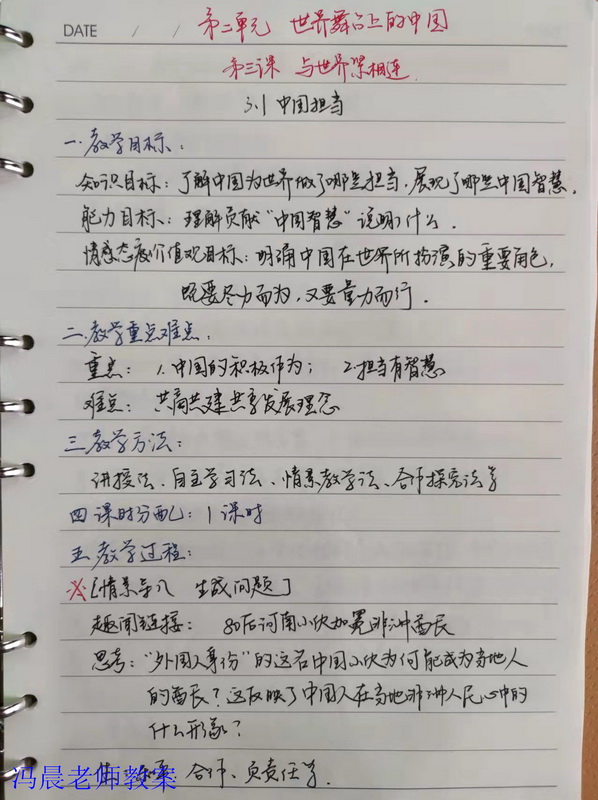 DATE / /
第二单元 世界舞台上的中国
第三课 与世界紧相连
3.1 中国担当
一.教学目标:
知识目标:了解中国为世界做了哪些担当,展现了哪些中国智慧.
能力目标:理解贡献"中国智慧"说明什么.
情感态度价值观目标:明确中国在世界所扮演的重要角色,
既要尽力而为,又要量力而行.
二.教学重点难点:
重点: 1.中国的积极作为; 2.担当有智慧
难点: 共商共建共享发展理念
三教学方法:
讲授法、自主学习法、情景教学法、合作探究法等
四课时分配:1课时
五.教学过程:
※[情景导入 生成问题]
趣闻链接: 80后河南小伙加冕非洲酋长
思考:"外国人身份"的这名中国小伙为何能成为当地人
的酋长?这反映了中国人在当地非洲人民心中的
什么形象?
合作、负责任等.
冯晨老师教案